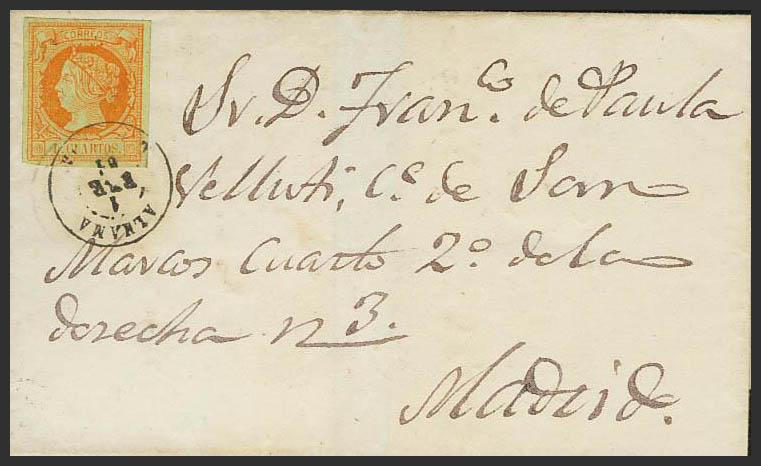 CORREOS
CUARTOS.
ALHAMA
1
Sr. D. Fran.co de Paula
Velluti, C.e de San
Marcos Cuarto 2.o de la
derecha n 3.
Madrid.